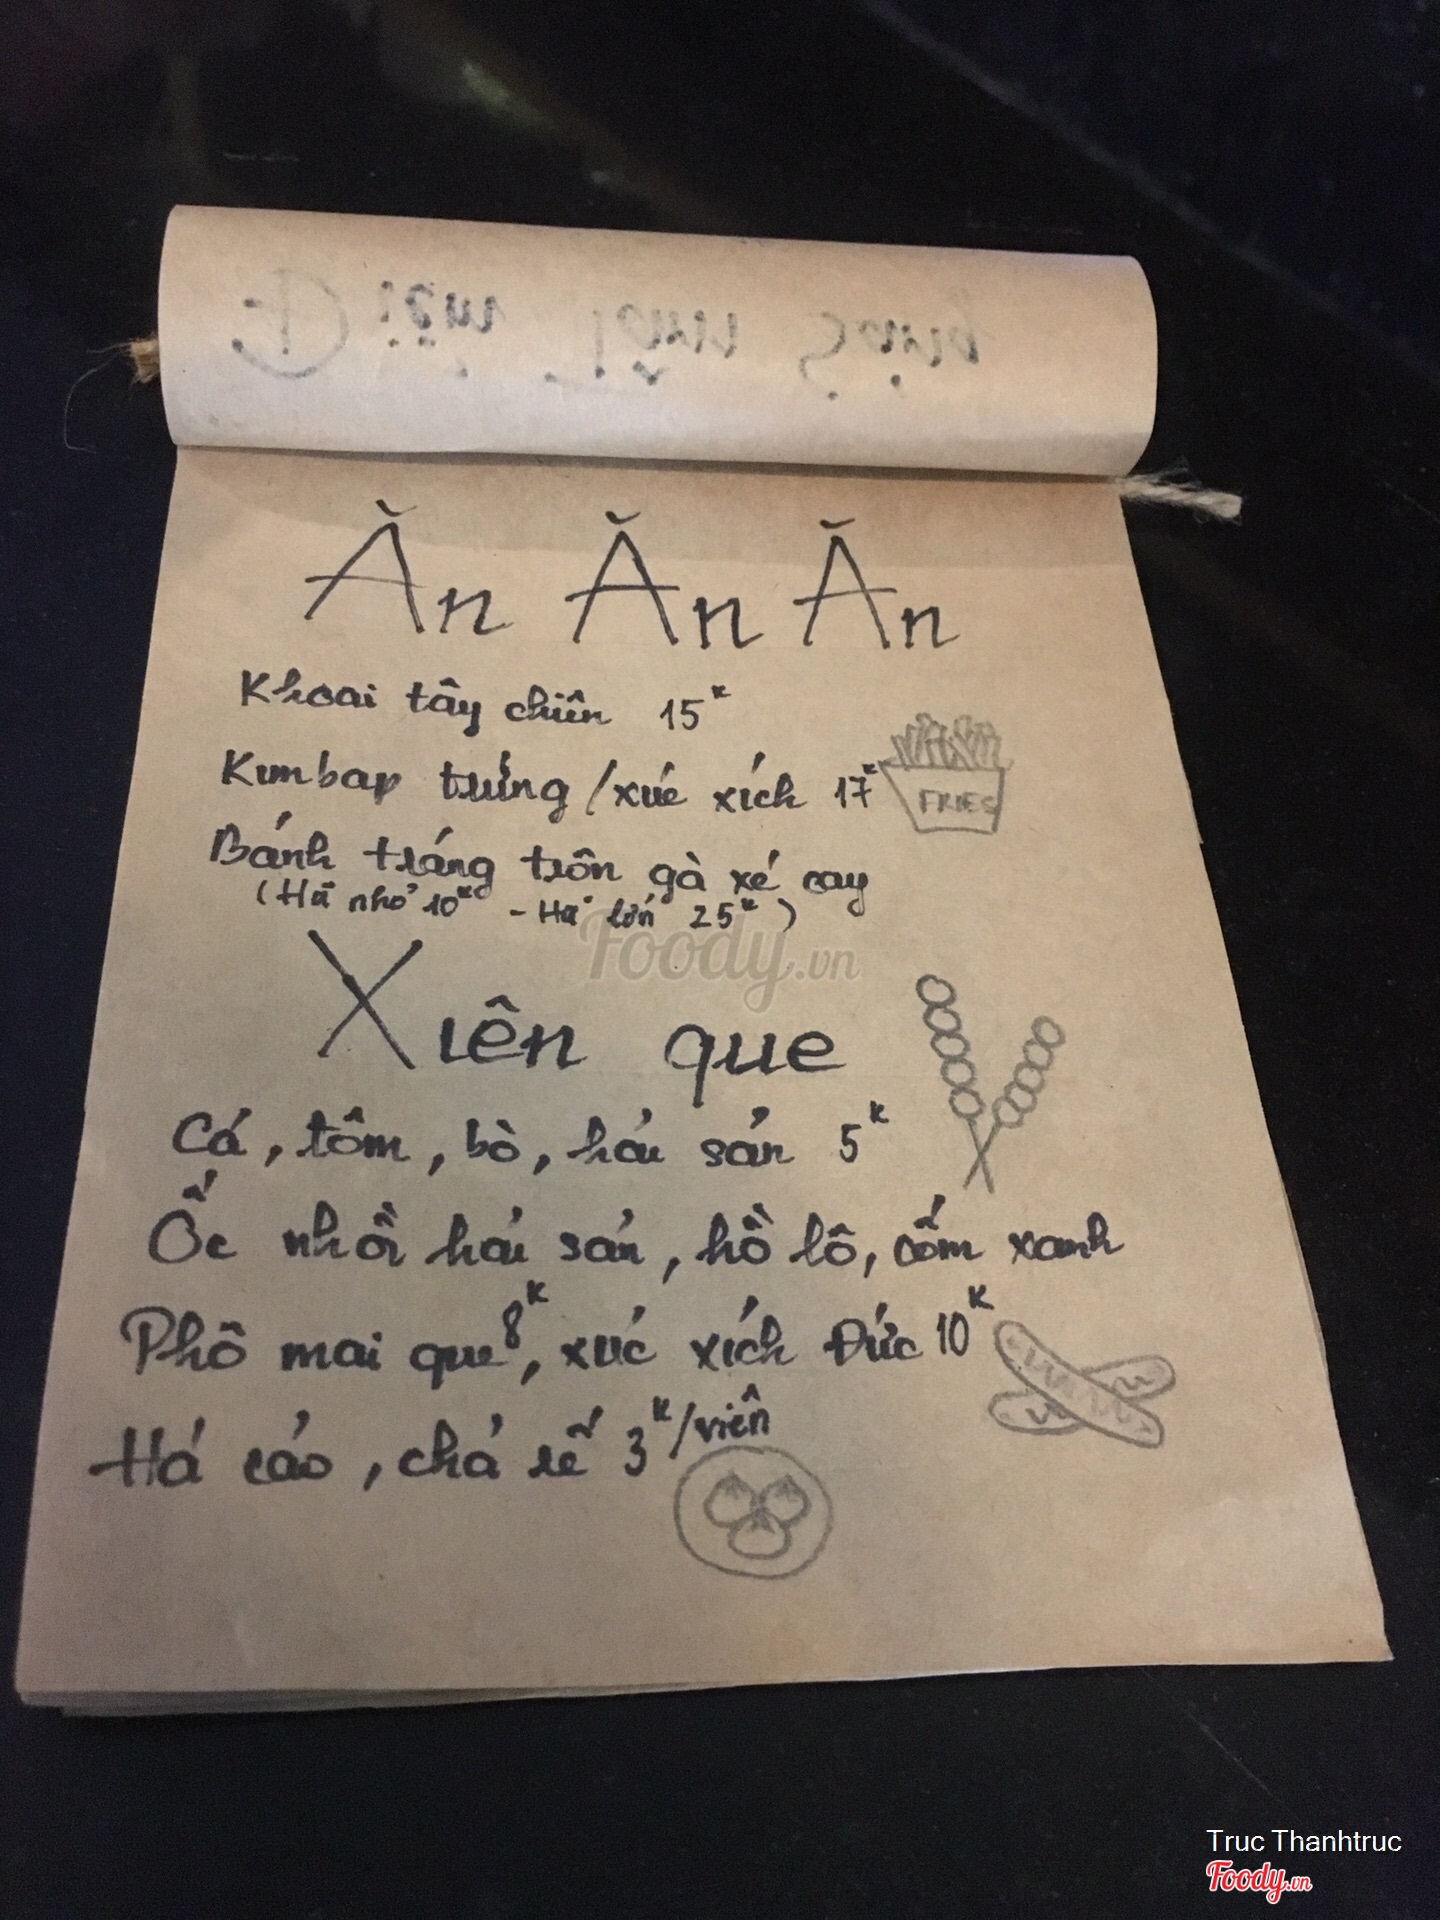 Ăn Ăn Ăn
Khoai tây chiên 15k
Kimbap trứng / xúc xích 17k
FRIES
Bánh tráng trộn gà xé cay
(Hủ nhỏ 10k - Hủ lớn 25k)
Foody.vn
Xiên que
Cá, tôm, bò, hải sản 5k
Ốc nhồi hải sản, hồ lô, cốm xanh
Phô mai que 8k, xúc xích Đức 10k
Há cảo, chả rế 3k/viên
Truc Thanhtruc
Foody.vn